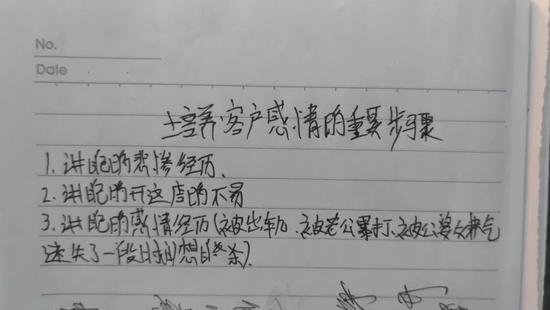 No.
Date
培养客户感情的重要步骤
1. 讲自己的悲惨经历.
2. 讲自己的开这店的不易
3. 讲自己的感情经历(被出轨, 被老公暴打, 被公婆欺气
迷失了一段时间想自杀).